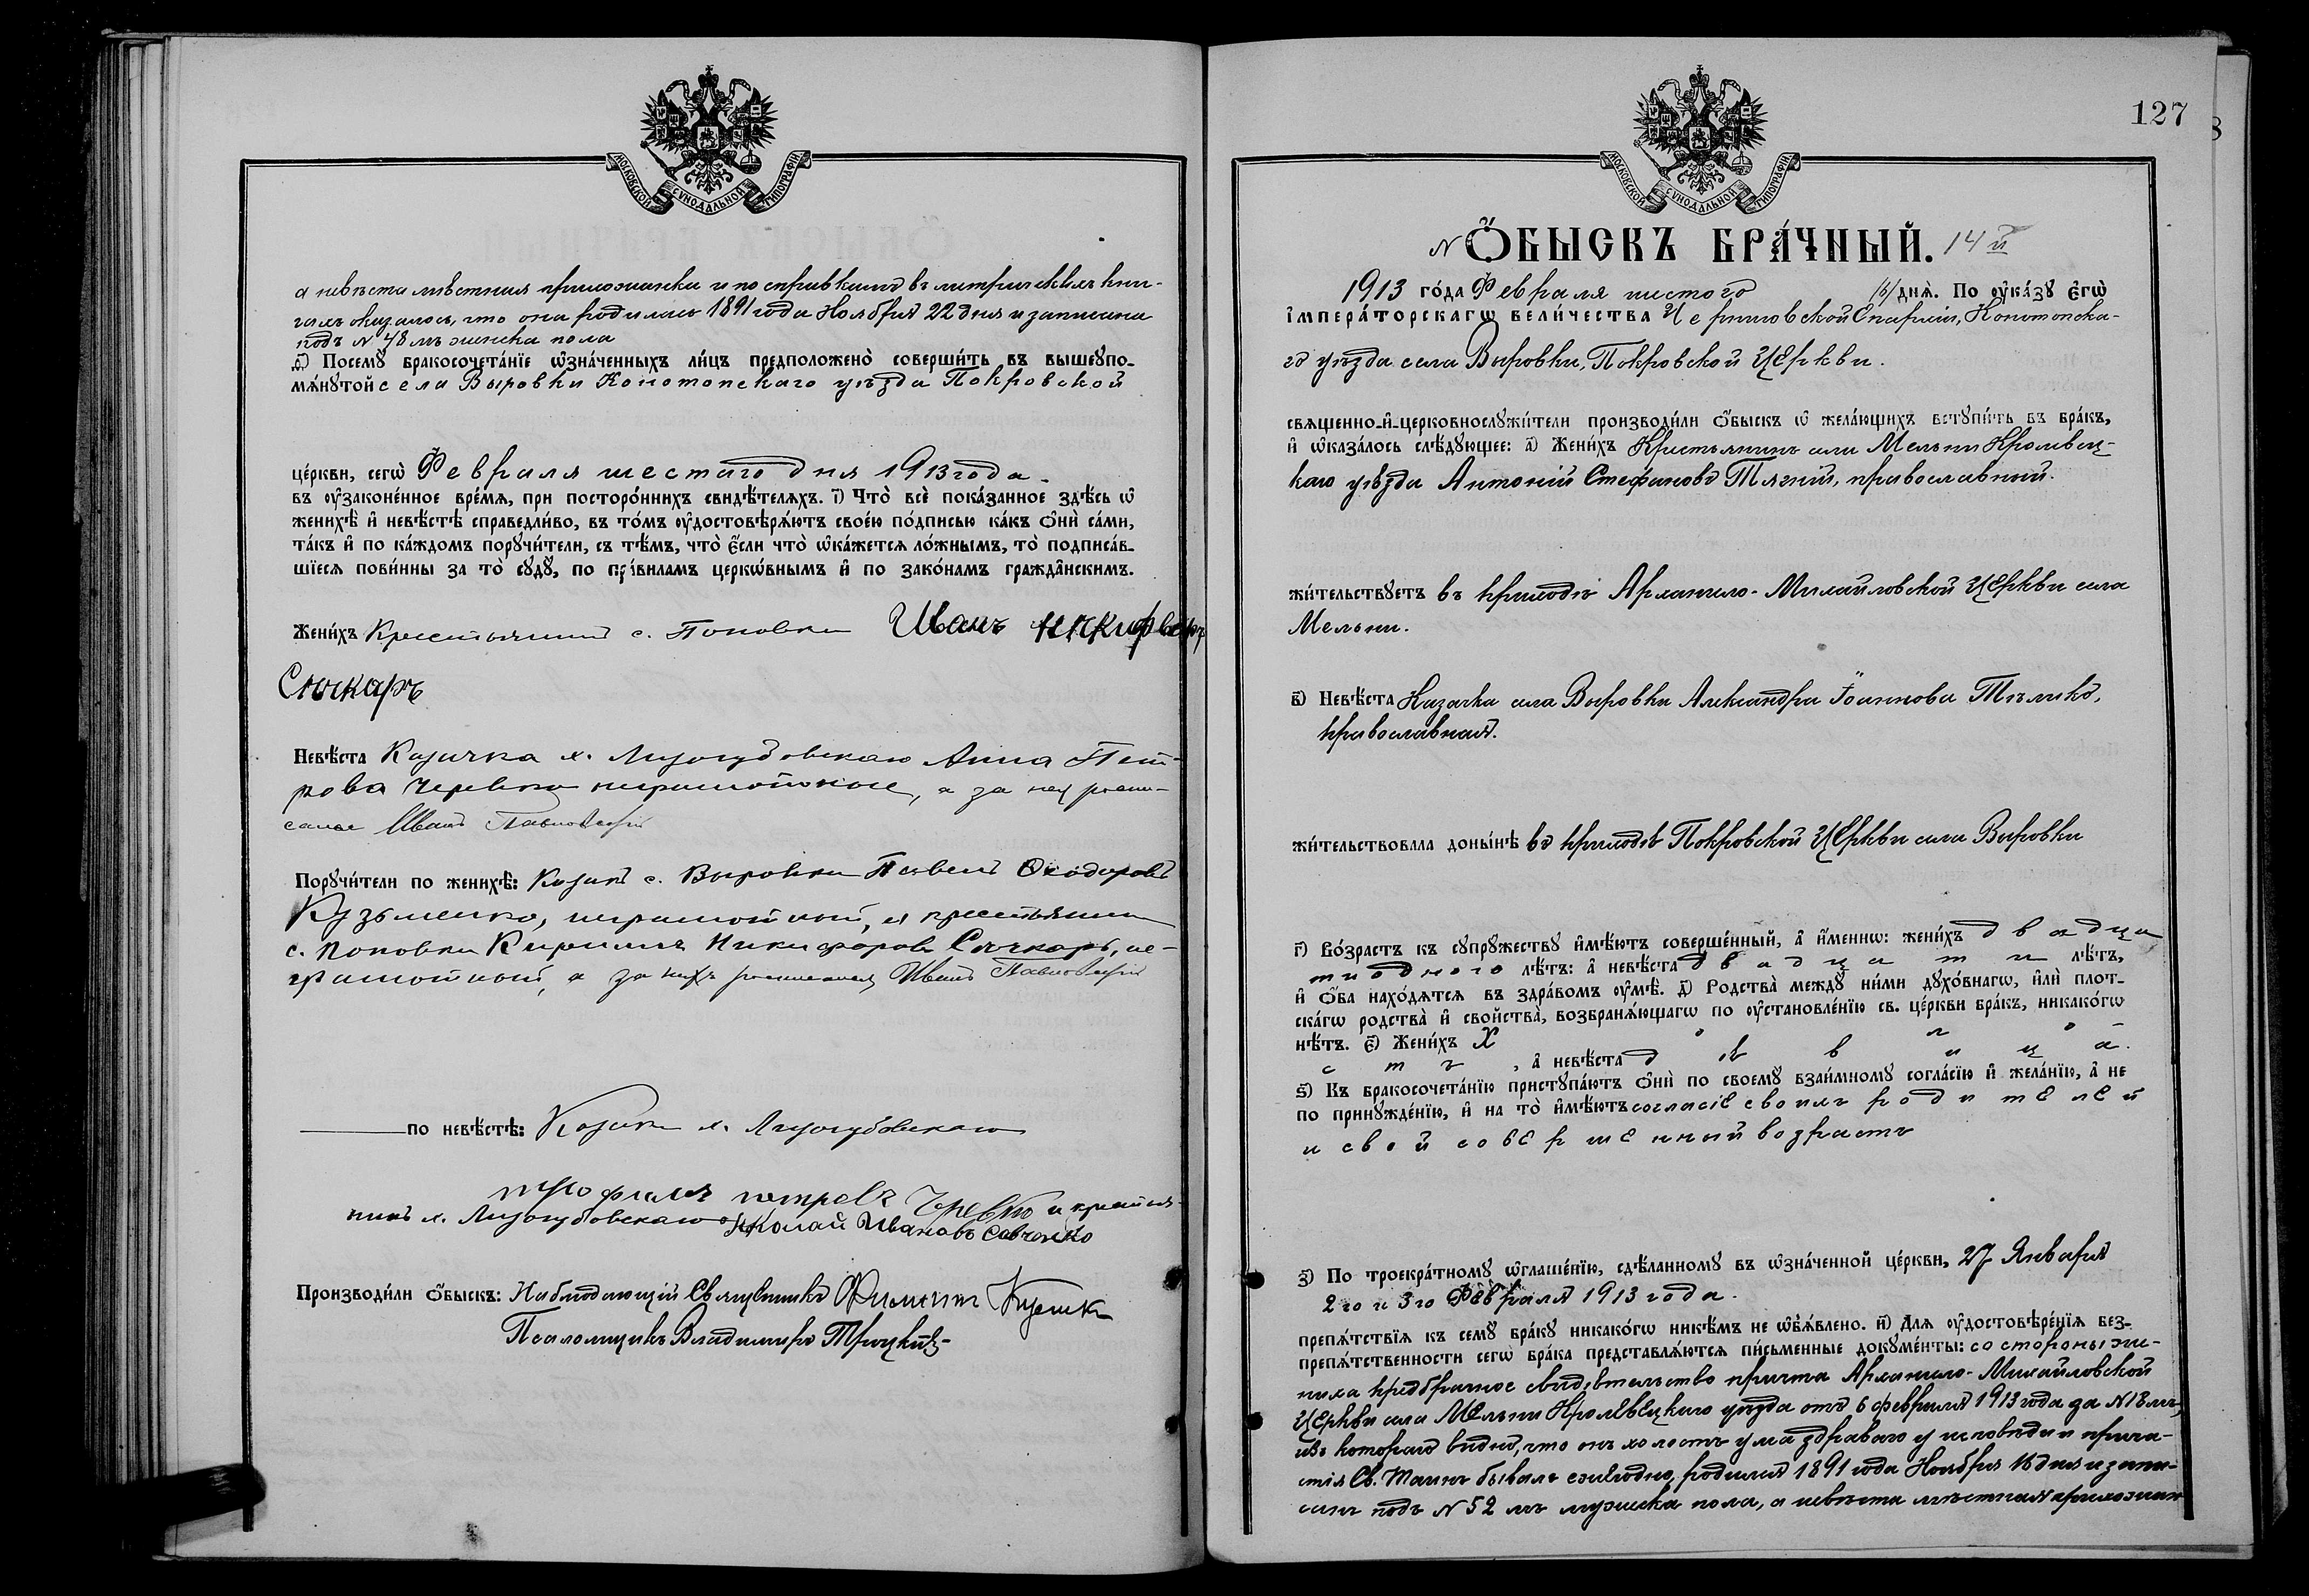 МОСКОВСКОЙ СУНОДАЛЬНОЙ ТИПОГРАФІИ
а невѣста мѣстная прихожанка и по справкамъ въ метрическихъ кни-
гахъ оказалось, что она родилась 1891 года Ноября 22 дня и записана
подъ N 48 мъ женска пола
ѳ҃) Посемꙋ̀ бракосочета́нїе ѡ҆зна́ченныхъ ли́цъ предположено̀ соверши́ть въ вышеꙋпо-
мѧ́нꙋтой села Выровки Конотопскаго уѣзда Покровской
це́ркви, сегѡ̀ Февраля шестаго дня 1913 года.
въ ᲂу҆законе́нное вре́мѧ, при посторо́ннихъ свидѣ́телѧхъ. і҃) Что̀ всѐ пока́занное здѣ́сь ѡ҆
женихѣ̀ и҆ невѣ́стѣ справедли́во, въ то́мъ ᲂу҆достовѣрѧ́ютъ свое́ю по́дписью ка́къ ѻ҆нѝ са́ми,
та́къ и҆ по ка́ждомъ порꙋчи́тели, съ тѣ́мъ, что̀ є҆́сли что̀ ѡ҆ка́жетсѧ ло́жнымъ, то̀ подписа́в-
шїесѧ пови́нны за то̀ сꙋдꙋ̀, по пра́виламъ церкѡ́внымъ и҆ по зако́намъ гражда̂нскимъ.
Жени́хъ Крестьянинъ с. Поповки Иванъ Никифоровъ
Сючкаръ
Невѣ́ста Казачка х. Лизогубовскаго Анна Пет-
рова Черевко неграмотные, а за нея распи-
сался Иванъ
Порꙋчи́тели по женихѣ̀: Казакъ с. Выровки Павелъ Ѳеодоровъ
Кузьменко, неграмотный, и крестьянин
с. Поповки Кириллъ Никифоровъ Сючкаръ, не-
грамотный, а за нихъ росписался Иванъ
по невѣ́стѣ: Казакъ х. Лизогубовскаго
петровъ Чревко и крестья-
нинъ х. Лизогубовскаго Николай Ивановъ Савченко
Производи́ли ѻ҆́быскъ: Наблюдающій Священникъ
Псаломщикъ Владимиръ Троцкій
127
МОСКОВСКОЙ СУНОДАЛЬНОЙ ТИПОГРАФІИ
N Ѻ҆́БЫСКЪ БРА́ЧНЫЙ. 14 й
1913 го́да Февраля шестого /6/ днѧ̀. По ᲂу҆ка́зꙋ є҆гѡ̀
і҆мпера́торскагѡ вели́чества Черниговской Епархіи, Конотопска-
го уѣзда села Выровки, Покровской Церкви.
свѧщенно-и҆-церковнослꙋжи́тели производи́ли ѻ҆́быскъ ѡ҆ жела́ющихъ встꙋпи́ть въ бра́къ,
и҆ ѡ҆каза́лось слѣ́дꙋющее: а҃) Жени́хъ Крестьянинъ села Мельни Кролевец-
каго уѣзда Антоній Стефановъ Тягній, православный.
жи́тельствꙋетъ въ приходѣ Архангело-Михайловской Церкви села
Мельни.
в҃) Невѣ́ста Казачка села Выровки Александра Іоаннова Тѣлико,
православная.
жи́тельствовала доны́нѣ въ приходѣ Покровской Церкви села Выровки
г҃) Во́зрастъ къ сꙋпрꙋ́жествꙋ и҆мѣ́ютъ соверше́нный, а҆ и҆́меннѡ: жени́хъ двадца
ти одного лѣ́тъ: а҆ невѣ́ста двадцати лѣ́тъ,
и҆ ѻ҆́ба нахо́дѧтсѧ въ здра́вомъ ᲂу҆мѣ̀. д҃) Родства̀ междꙋ̀ ни́ми дꙋхо́внагѡ, и҆лѝ плот-
ска́гѡ родства̀ и҆ свойства̀, возбранѧ́ющагѡ по ᲂу҆становле́нїю св. це́ркви бра́къ, никако́гѡ
нѣ́тъ. є҃) Жени́хъ Холо-
стъ, а҆ невѣ́ста дѣвица.
ѕ҃) Къ бракосочета́нїю пристꙋпа́ютъ ѻ҆нѝ по своемꙋ̀ взаи́мномꙋ согла́сїю и҆ жела́нїю, а҆ не
по принꙋжде́нїю, и҆ на то̀ и҆мѣ́ютъ согласіе своихъ родителей
и свой совершенный возрастъ
з҃) По троекра́тномꙋ ѡ҆глаше́нїю, сдѣ́ланномꙋ въ ѡ҆зна́ченной це́ркви, 27 Января
2го и 3го Февраля 1913 года.
препѧ́тствїѧ къ семꙋ̀ бра́кꙋ никако́гѡ никѣ́мъ не ѡ҆б̾ѧ́влено. и҃) Длѧ ᲂу҆достовѣре́нїѧ без-
препѧ́тственности сегѡ̀ бра́ка представлѧ́ютсѧ пи́сьменные докꙋме́нты: со стороны же-
ниха предбрачное свидѣтельство причта Архангело-Михайловской
Церкви села Мельни Кролевецкаго уѣзда отъ 6 февраля 1913 года за N 13 мъ,
изъ котораго видно, что онъ холостъ ума здраваго у исповѣди и прича-
стія Св. Таинъ бывалъ ежегодно, родился 1891 года Ноября 16 дня и запи-
санъ подъ N 52 мъ мужеска пола, а невѣста мѣстная прихожан